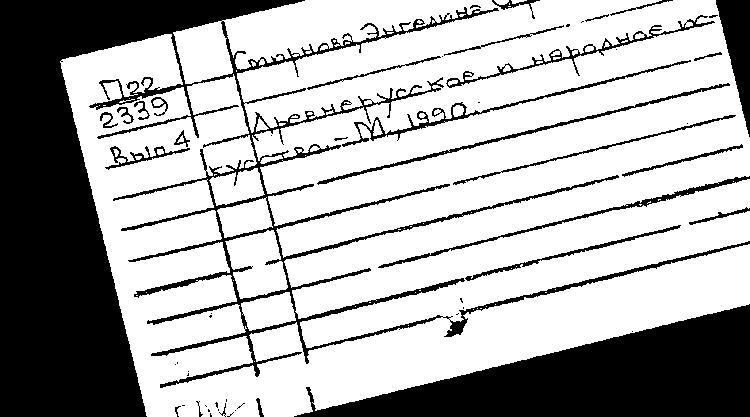 П22
2339
Вып.4
Смирнова, Энгелина С
Древнерусское и народное ис-
кусство. – М., 1990.